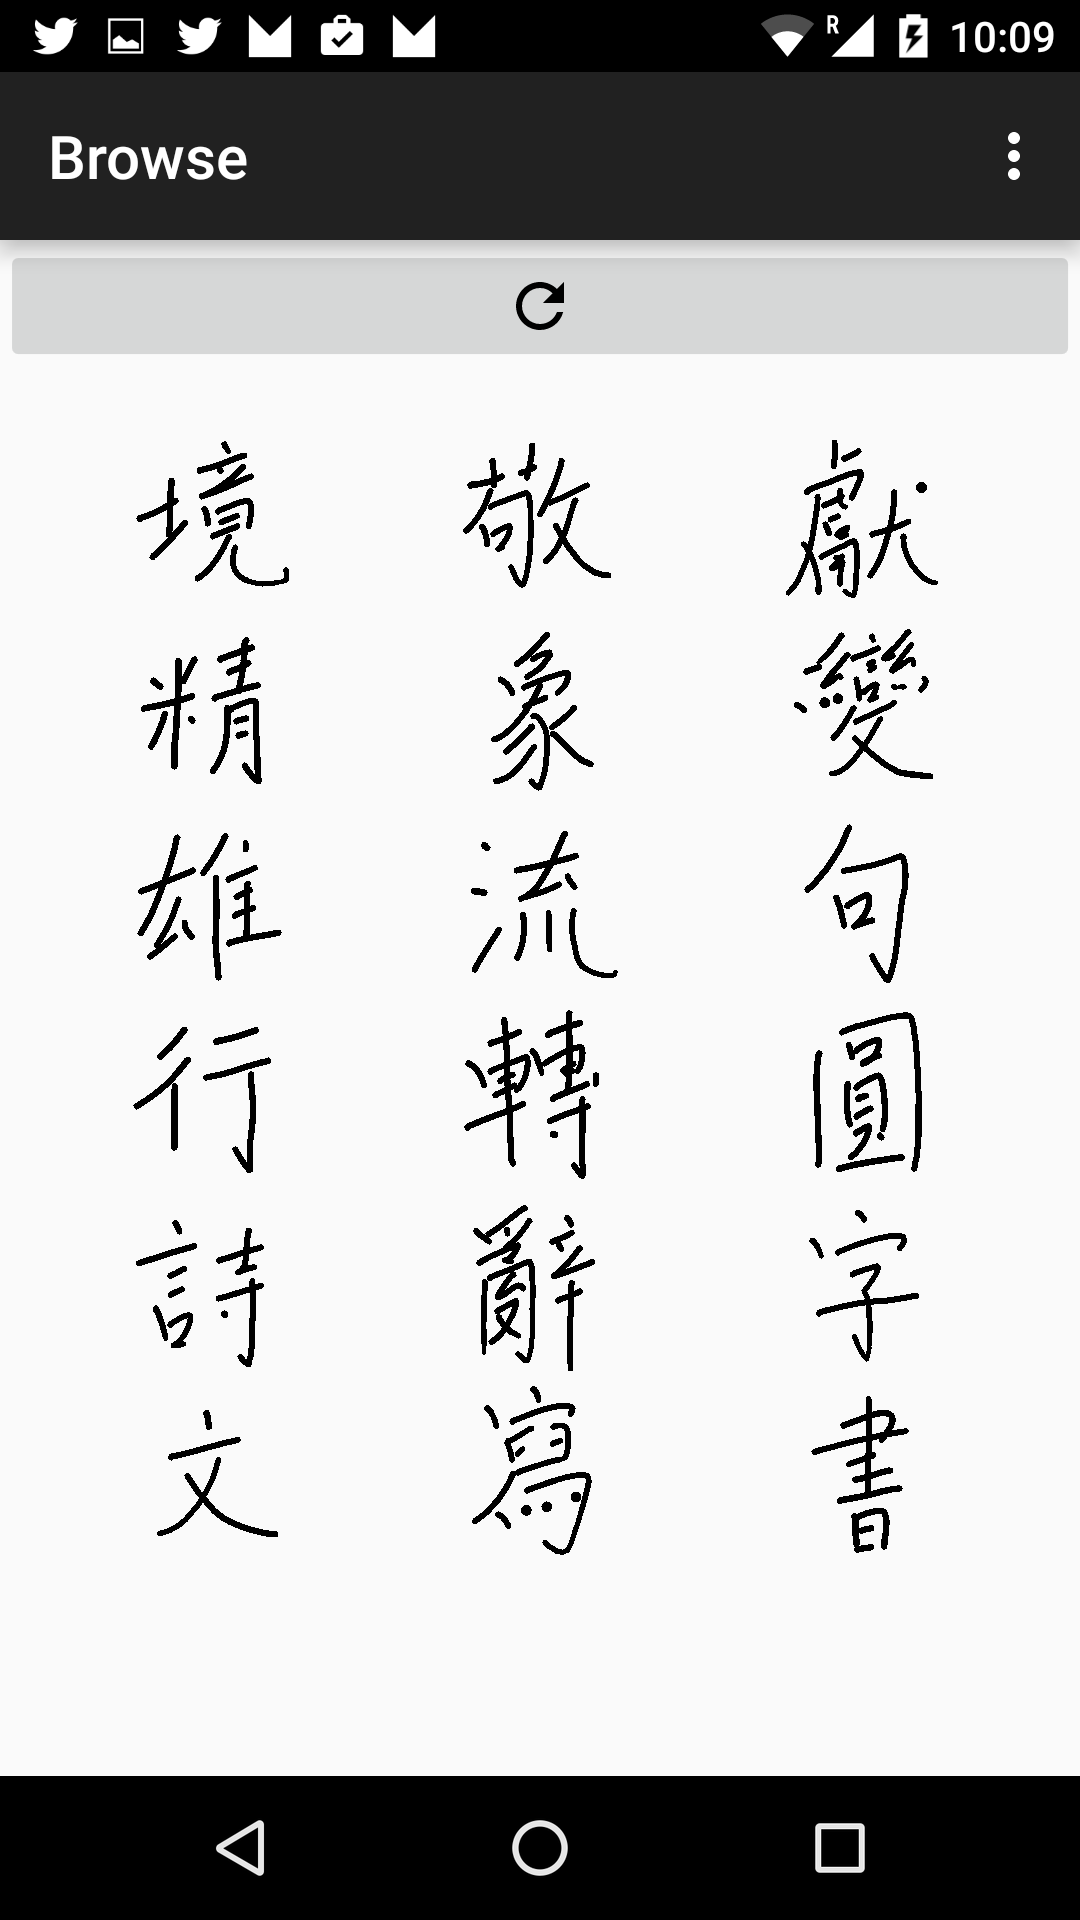 10:09
Browse
境敬獻
精象變
雄流句
行轉圓
詩辭字
文寫書